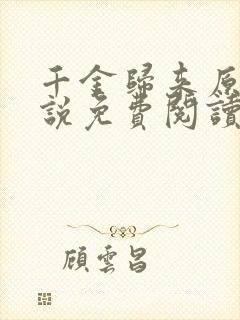 千金歸來原
說免費閱讀
顧雲昌